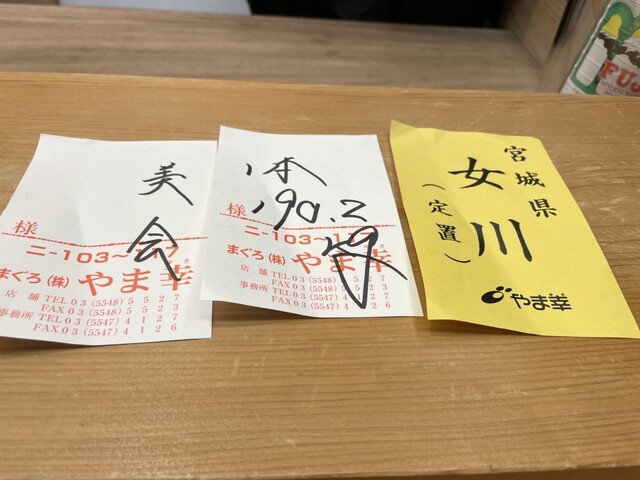 美
会
様
ニ-103~117
まぐろ(株)やま幸
店舗 TEL 03 (5548) 5527
FAX 03 (5548) 5523
事務所 TEL 03 (5547) 4127
FAX 03 (5547) 4126
1本
190.2
様
ニ-103~117
まぐろ(株)やま幸
店舗 TEL 03 (5548) 5527
FAX 03 (5548) 5523
事務所 TEL 03 (5547) 4127
FAX 03 (5547) 4126
宮城県
女川
(定置)
やま幸
FUJI